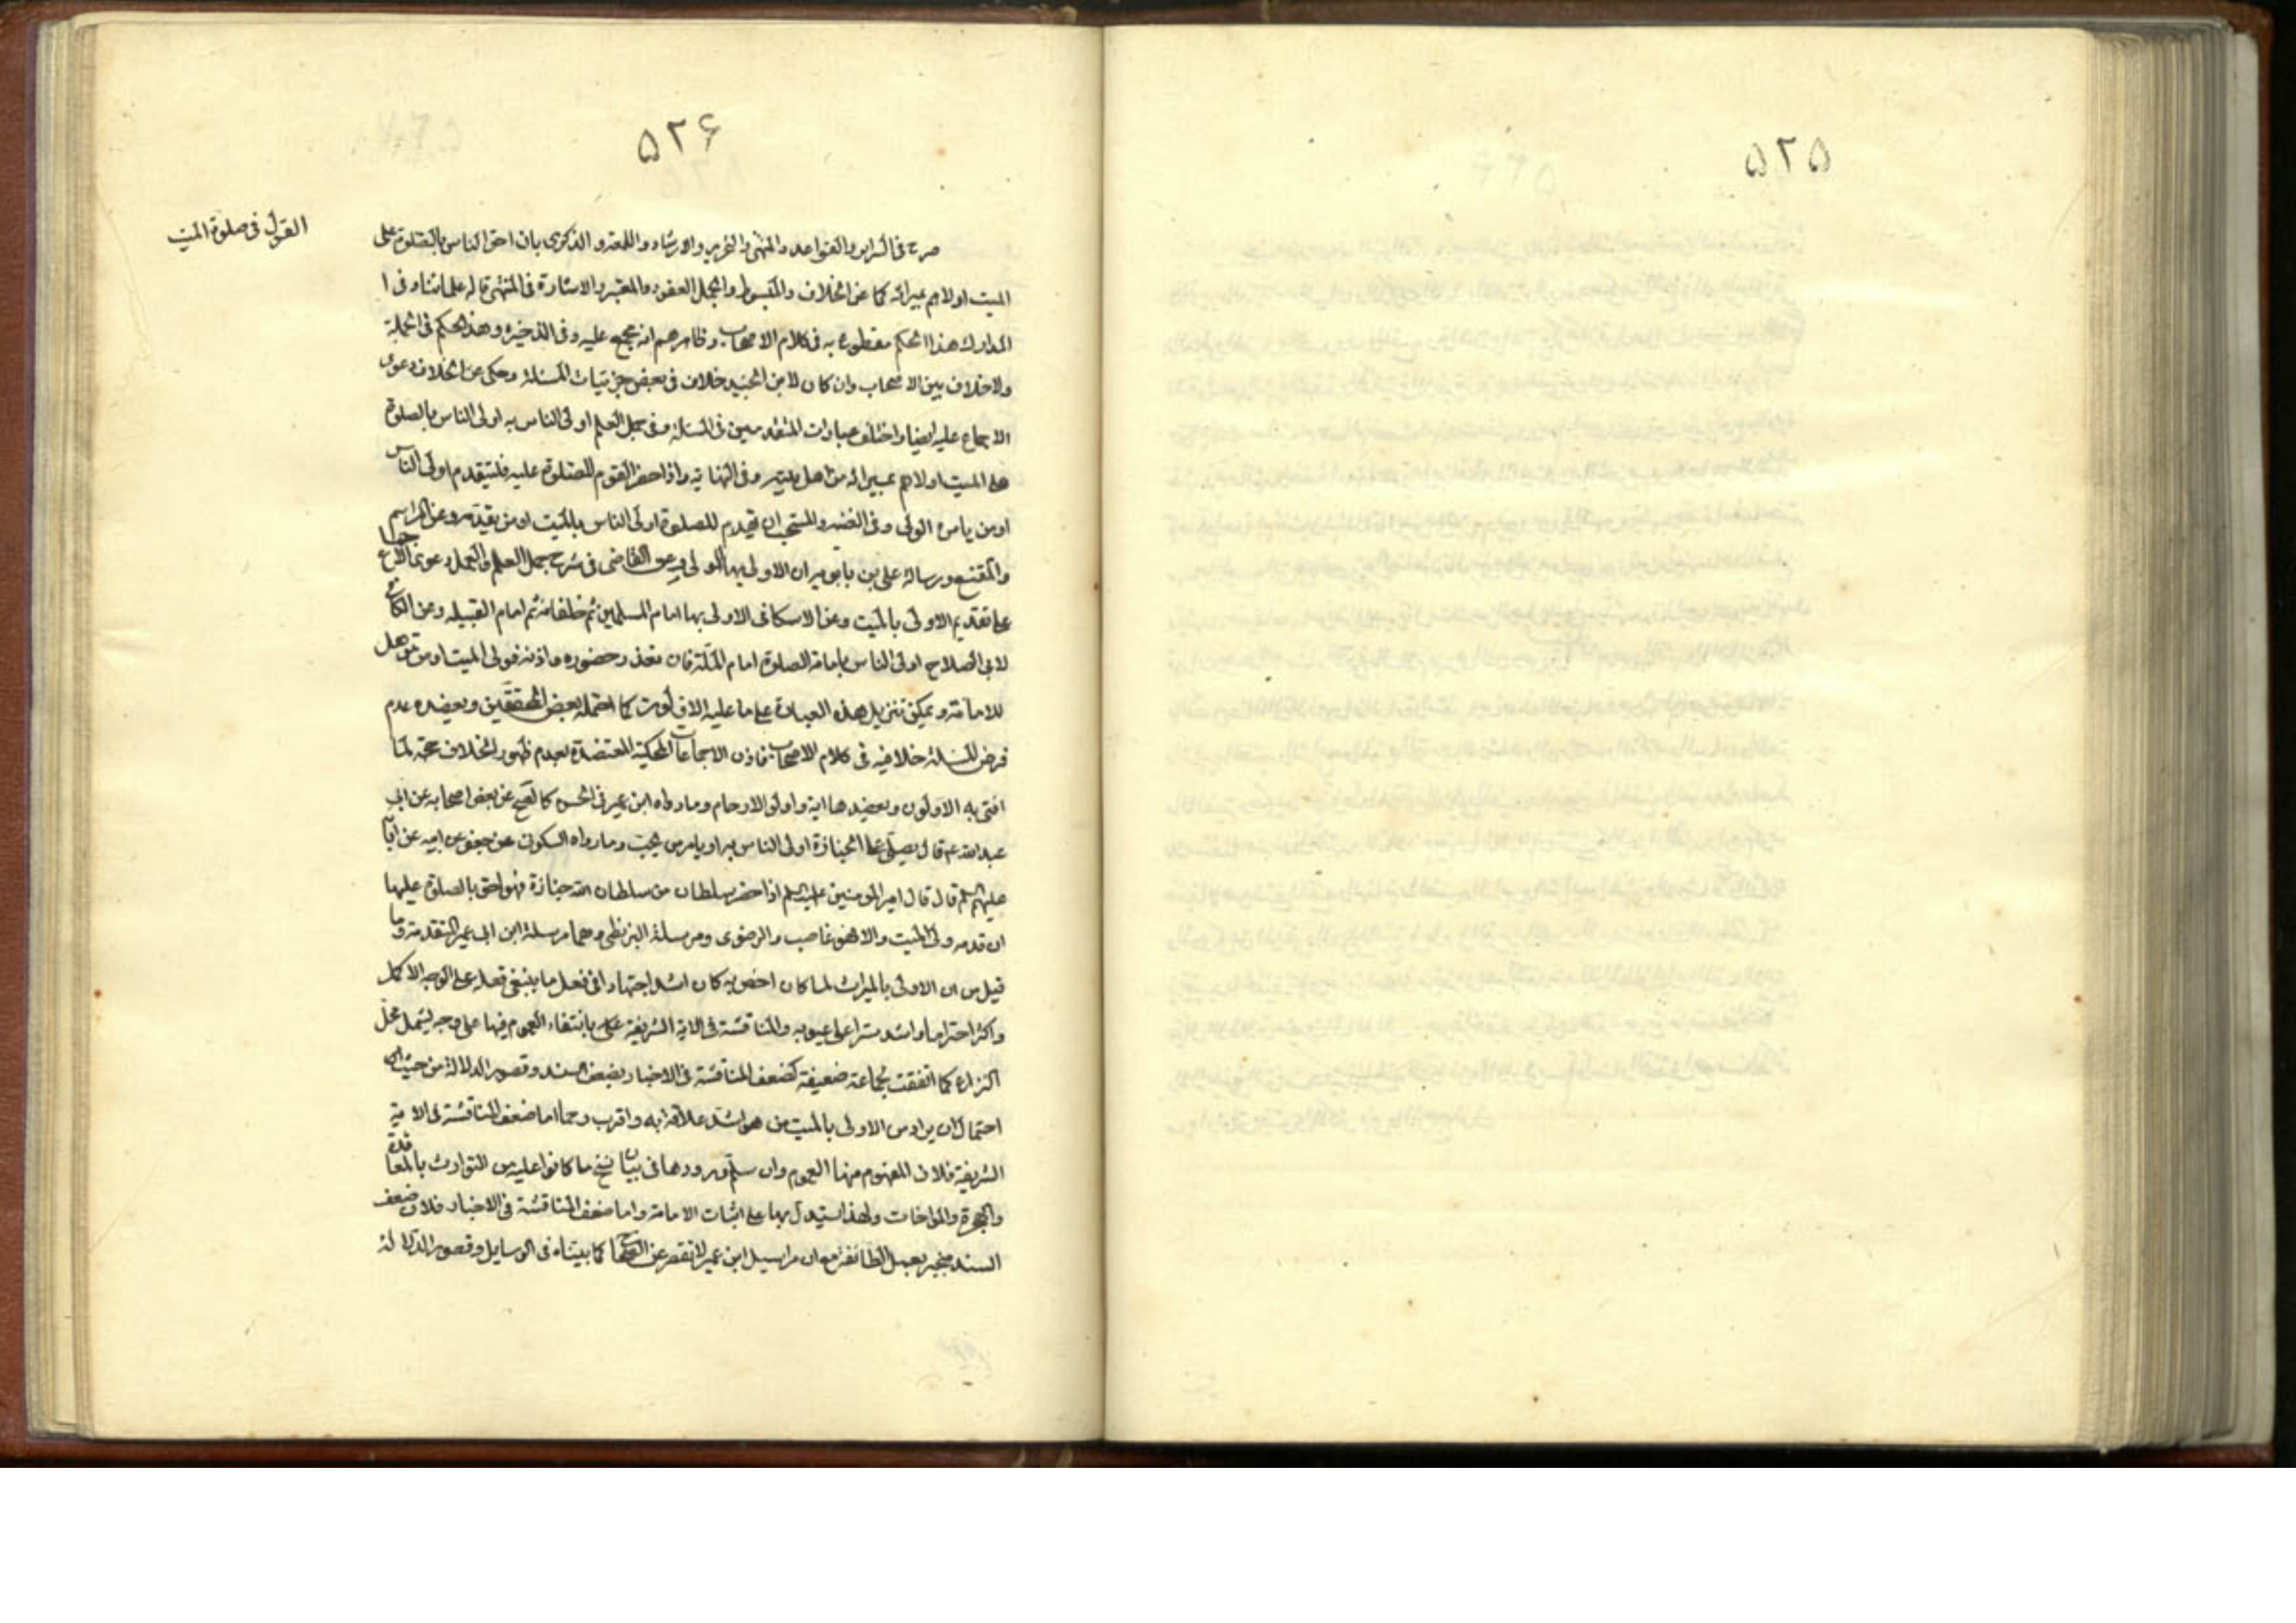 ٥٢٥
٥٢۶
القول فی صلوة المیت
صرح فی السرایر والقواعد والمنتهی والتحریر والارشاد واللمعه و الذکری بان احق الناس بالصلوة علی
المیت اولاهم بمیراثه کما عن الخلاف والمبسوط والجمل العقود والمعتبر والاشارة فی المنتهی قاله علمائنا و فی ا
المدارك هذا الحکم مقطوع به فی کلام الاصحاب و ظاهرهم انه مجمع علیه و فی الذخیرة و هذا الحکم فی الجملة
ولاخلاف بین الاصحاب وان کان لابن الجنید خلاف فی بعض جزئیات المسئلة وحکی عن الخلاف دعوی
الاجماع علیه ایضا واختلف عبارات المتقدمین فی المسئلة و فی جمل العلم اولی الناس به اولی الناس بالصلوة
علی المیت اولاهم بمیراثه من اهل بیته و فی النهایة واذا حضر القوم للصلوة علیه فلیتقدم اولی الناس
اومن یامره الولی و فی الغنیه والمستحب ان یقدم للصلوة اولی الناس بالمیت اومن یقدمه وعن المراسم
والمقنع ورسالة علی بن بابویه ان الاولی بها الولی وعن القاضی فی شرح جمل العلم والعمل دعوی الاجماع
علی تقدیم الاولی بالمیت وعن الاسکافی الاولی بها امام المسلمین ثم خلفائه ثم امام القبیله وعن الکافی
لابی الصلاح اولی الناس بامامة الصلوة امام الملة فان تعذر حضوره واذنه فولی المیت اومن یؤهل
للامامة ویمکن تنزیل هذه العبارة علی ما علیه الاولون کما احتمله بعض المحققین ویعضده عدم
فرض المسئلة خلافیه فی کلام الاصحاب فاذن الاجماعات المحکیة المعتضدة بعدم ظهور الخلاف حجة لما
افتی به الاولون ویعضدها ایة واولوا الارحام وما رواه ابن عمیر فی الحسن کالصحیح عن بعض اصحابه عن ابی
عبدالله ع قال یصلی علی الجنازة اولی الناس بها او یامر من یحب وما رواه السکونی عن جعفر عن ابیه عن آبائه
علیهم السلم قال قال امیر المومنین علیه السلم اذا حضر سلطان من سلطان الله جنازة فهو احق بالصلوة علیها
ان قدمه ولی المیت والا فهو غاصب والرضوی ومرسلة البزنطی وهما مرسلة ابن ابی عمیر المتقدمة وما
قیل من ان الاولی بالمیراث لما کان اخص به کان اشد اجتهادا فی فعل ما ینبغی فعله علی الوجه الاکمل
واکثر احتراما واشد سترا علی عیوبه والمناقشة فی الایة الشریفة بانتفاء العموم فیها علی وجه یشمل محل
النزاع کما اتفقت لجماعة ضعیفة کضعف المناقشة فی الاخبار بضعف السند وقصور الدلالة من حیث ان
احتمال ان یراد من الاولی بالمیت من هو اشد علاقة به واقرب رحما اما ضعف المناقشة فی الایة
الشریفة فلان المفهوم منها العموم وان سلم ورودها فی بیان نسخ ما کانوا علیه من التوارث بالمعاقدة
والهجرة والمواخات ولهذا استدل بها علی اثبات الامامة واما ضعف المناقشة فی الاخبار فلان ضعف
السند منجبر بعمل الطائفة مع ان مراسیل ابن عمیر لا تقصر عن الصحاح کما بیناه فی الوسایل وقصور الدلالة